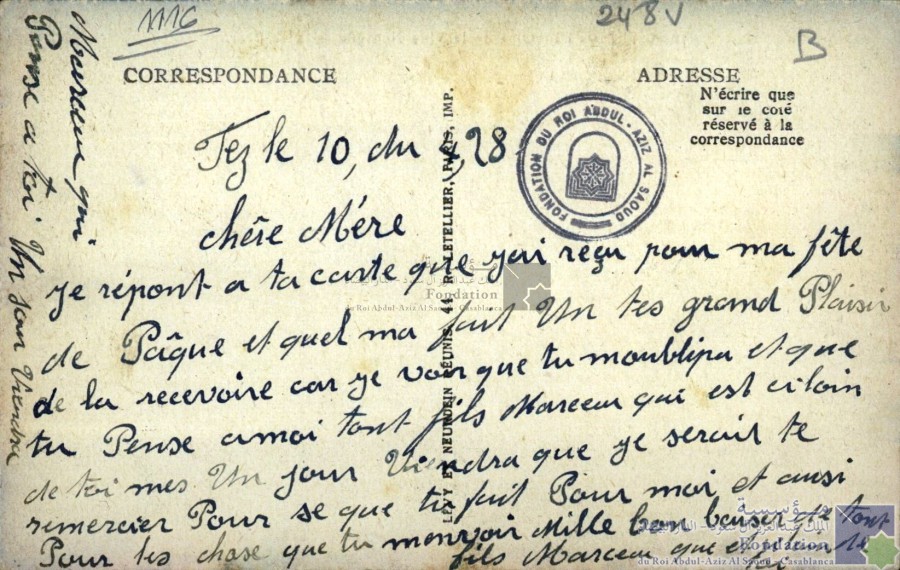 1116
248V
B
CORRESPONDANCE
ADRESSE
N'écrire que
sur le coté
réservé à la
correspondance
FONDATION DU ROI ABDUL-AZIZ AL SAOUD
LEVY ET NEURDEIN RÉUNIS, 44, R. LETELLIER, PARIS, IMP.
Fez le 10, du 4, 28
chêre Mére
Je répont a ta carte que j'ai reçu pour ma fête
de Pâque et quel ma fait Un tes grand Plaisir
de la recevoire car je voir que tu moublipa et que
tu Pense amoi tont fils Marceau qui est ci loin
de toi mes Un jour Viendra que je serait te
remercier Pour se que tu fait Pour moi et aussi
Pour les chose que tu menvoir Mille bon baiser de tont
fils Marceau que
Marceau qui
Pense a toi Un jour Viendra
مؤسسة
الملك عبد العزيز آل سعود - الدار البيضاء
Fondation
du Roi Abdul-Aziz Al Saoud - Casablanca
مؤسسة
الملك عبد العزيز آل سعود - الدار البيضاء
Fondation
du Roi Abdul-Aziz Al Saoud - Casablanca